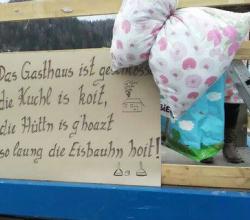 Das Gasthaus ist geschlosse
die Kuchl is koit,
die Hüttn is g'hoazt
so laung die Eisbauhn hoit!